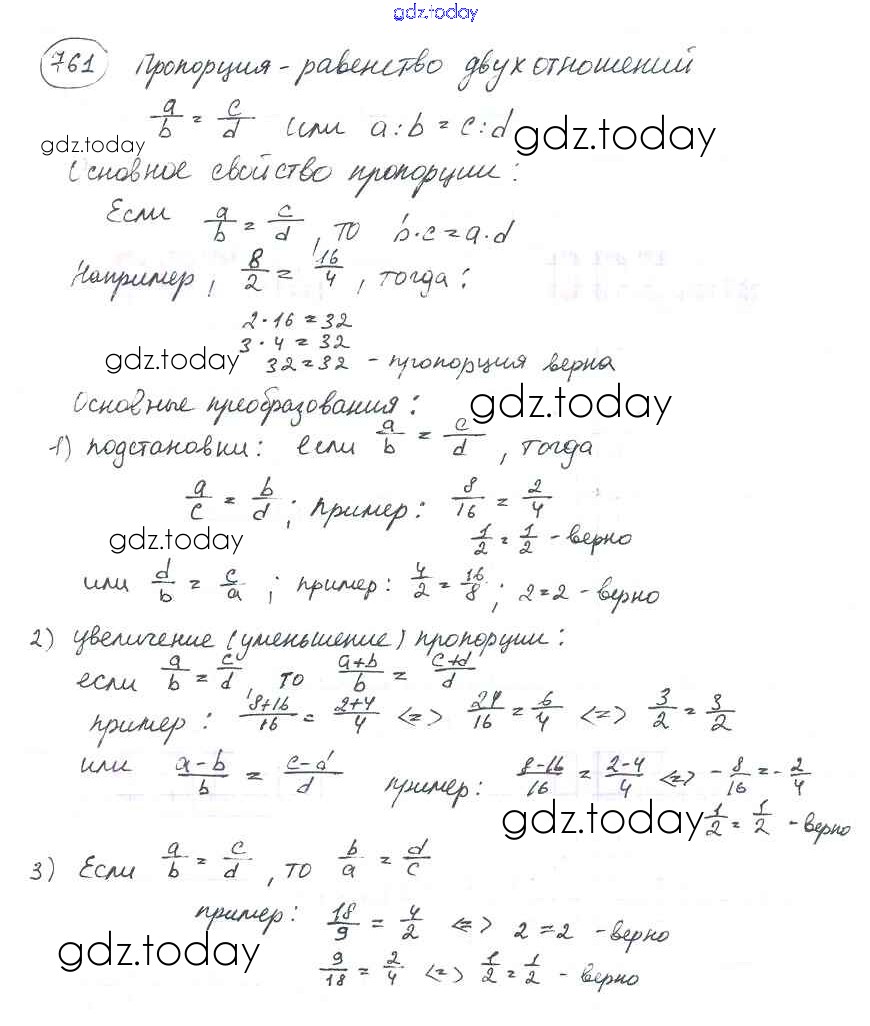 gdz.today
761 Пропорция - равенство двух отношений
a/b = c/d или a:b = c:d gdz.today
gdz.today
Основное свойство пропорции:
Если a/b = c/d, то b·c = a·d
Например, 8/2 = 16/4, тогда:
2·16 = 32
3·4 = 32
gdz.today 32 = 32 - пропорция верна
Основные преобразования: gdz.today
1) подстановки: если a/b = c/d, тогда
a/c = b/d; пример: 8/16 = 2/4
gdz.today 1/2 = 1/2 - верно
или d/b = c/a; пример: 4/2 = 16/8; 2=2 - верно
2) увеличение (уменьшение) пропорции:
если a/b = c/d, то (a+b)/b = (c+d)/d
пример: (8+16)/16 = (2+4)/4 <=> 24/16 = 6/4 <=> 3/2 = 3/2
или (a-b)/b = (c-d)/d пример: (8-16)/16 = (2-4)/4 <=> -8/16 = -2/4
gdz.today 1/2 = 1/2 - верно
3) Если a/b = c/d, то b/a = d/c
пример: 18/9 = 4/2 <=> 2 = 2 - верно
gdz.today 9/18 = 2/4 <=> 1/2 = 1/2 - верно